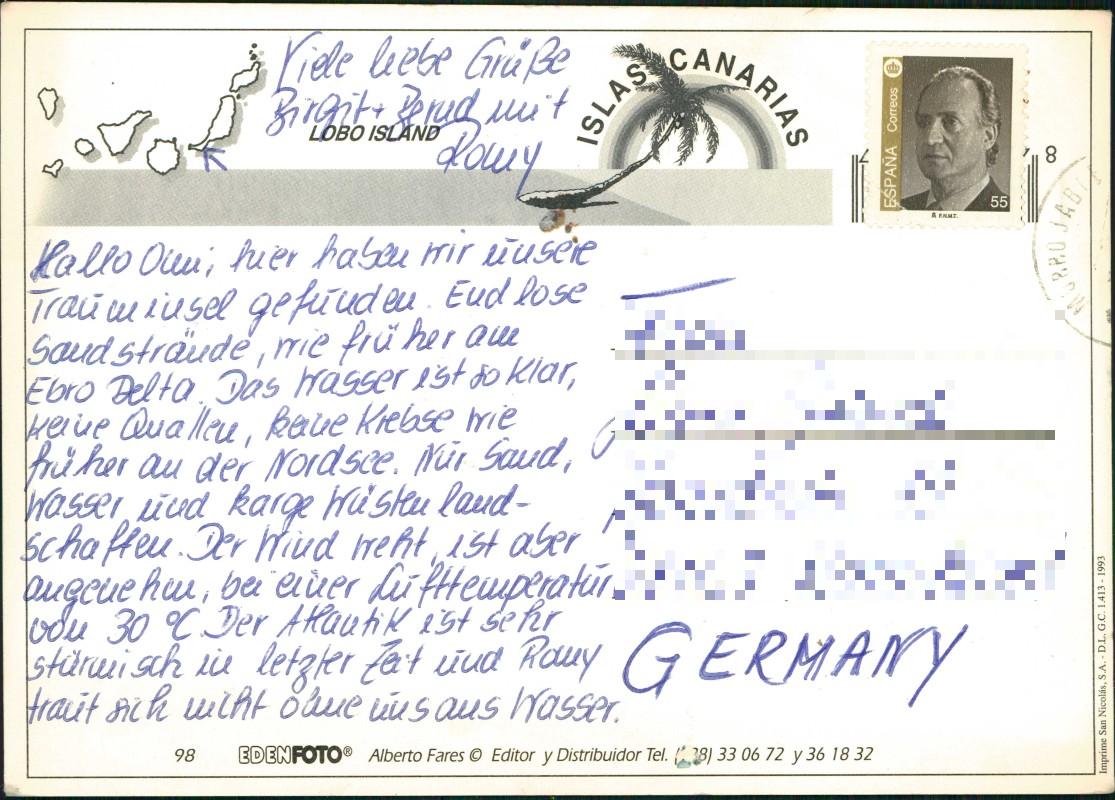 Viele liebe Grüße
Birgit + Bernd mit
Romy
LOBO ISLAND
ISLAS CANARIAS
ESPAÑA Correos
55
F.N.M.T.
8
MORRO JABLE
Hallo Omi, hier haben wir unsere
Trauminsel gefunden. Endlose
Sandstrände, wie früher am
Ebro Delta. Das Wasser ist so klar,
keine Quallen, keine Krebse wie
früher an der Nordsee. Nur Sand,
Wasser und karge Wüstenland-
schaften. Der Wind weht, ist aber
angenehm, bei einer Lufttemperatur
von 30 °C. Der Atlantik ist sehr
stürmisch in letzter Zeit und Romy
traut sich nicht ohne uns ans Wasser.
GERMANY
98 EDENFOTO® Alberto Fares © Editor y Distribuidor Tel. 33 06 72 y 36 18 32
Imprime San Nicolás, S.A. - D.L. G.C. 1.413 - 1993